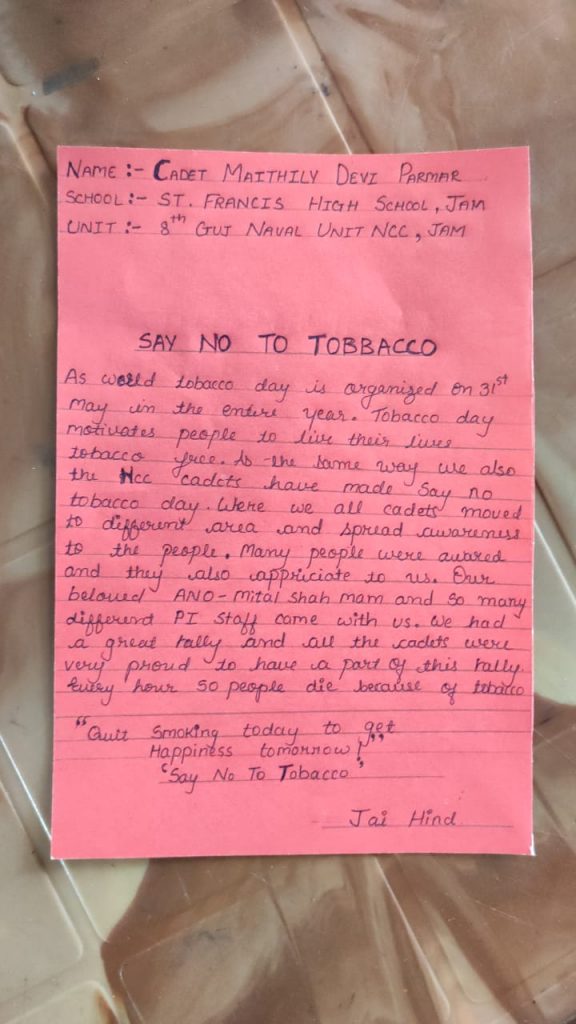 NAME :- CADET MAITHILY DEVI PARMAR
SCHOOL :- ST. FRANCIS HIGH SCHOOL, JAM
UNIT :- 8th GUJ NAVAL UNIT NCC, JAM
SAY NO TO TOBBACCO
As world tobacco day is organized on 31st
May in the entire year. Tobacco day
motivates people to live their lives
tobacco free. As the same way we also
the Ncc cadets have made Say no
tobacco day. Were we all cadets moved
to different area and spread awareness
to the people. Many people were awared
and they also appriciate to us. Our
beloved ANO - mital shah mam and so many
different PI Staff came with us. We had
a great rally and all the cadets were
very proud to have a part of this rally.
Every hour so people die because of tobacco
"Quit Smoking today to get
Happiness tomorrow!"
"Say No To Tobacco"
Jai Hind